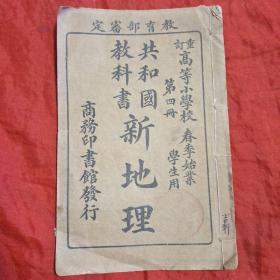 教育部審定
重訂
高等小學校 春季始業
第四冊 學生用
共和國
教科書
新地理
商務印書館發行